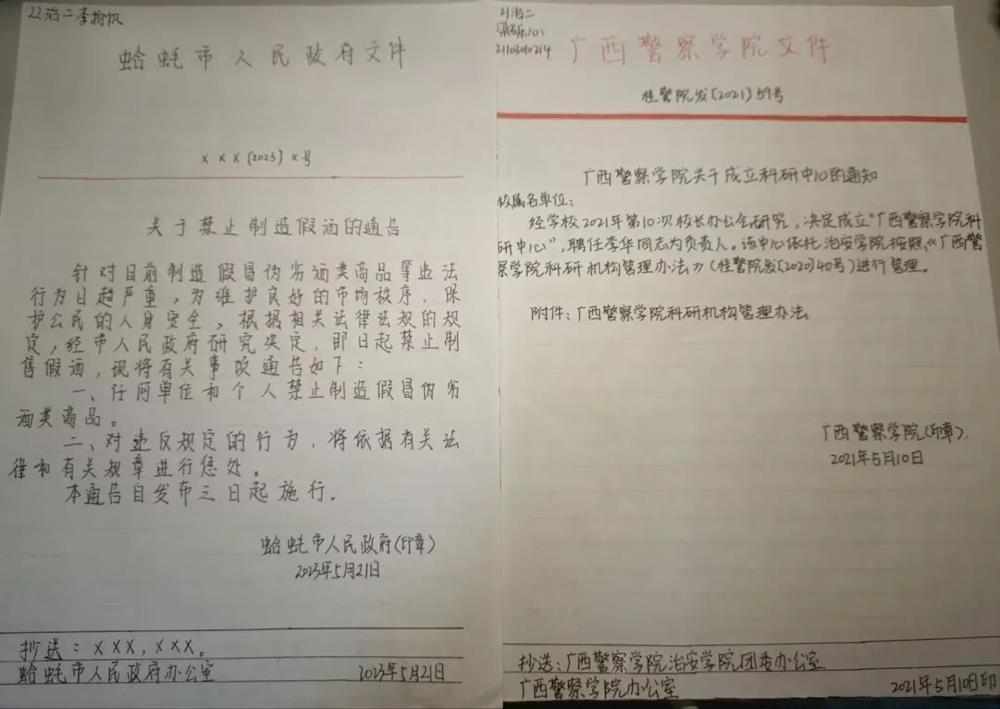 22治二李
蛤蚌市人民政府文件
X X X (2023) X号
关于禁止制造假酒的通告
针对目前制造假冒伪劣酒类商品等违法
行为日趋严重，为维护良好的市场秩序，保
护公民的人身安全，根据相关法律法规的规
定，经市人民政府研究决定，即日起禁止制
售假酒，现将有关事项通告如下：
一、任何单位和个人禁止制造假冒伪劣
酒类商品。
二、对违反规定的行为，将依据有关法
律和有关规章进行惩处。
本通告自发布三日起施行。
蛤蚌市人民政府(印章)
2023年5月21日
抄送：XXX，XXX。
蛤蚌市人民政府办公室 2023年5月21日
21治二
广西警察学院文件
桂警院发〔2021〕59号
广西警察学院关于成立科研中心的通知
校属各单位：
经学校2021年第10次校长办公会研究，决定成立“广西警察学院科
研中心”，聘任李华同志为负责人。该中心依托治安学院按照《广西警
察学院科研机构管理办法》(桂警院发〔2020〕40号)进行管理。
附件：广西警察学院科研机构管理办法
广西警察学院(印章).
2021年5月10日
抄送：广西警察学院治安学院团委办公室
广西警察学院办公室 2021年5月10日印